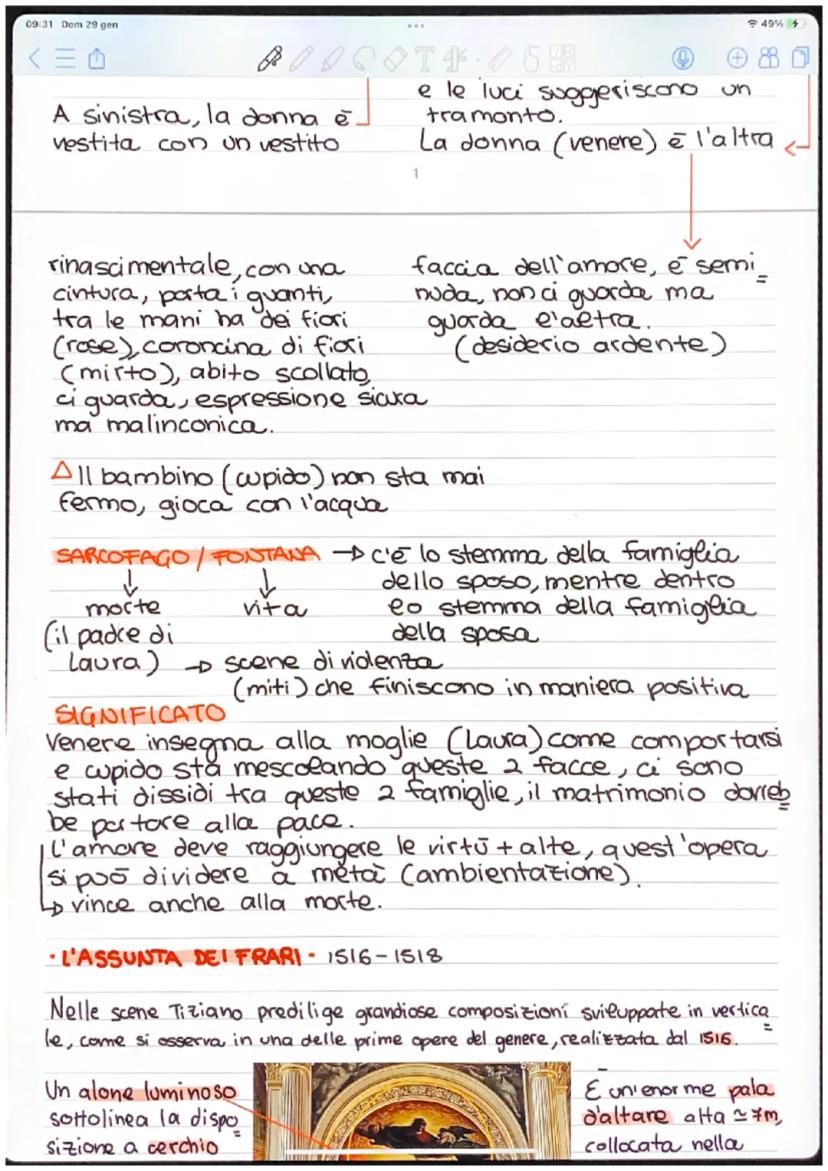 09:31 Dom 29 gen
49%
A sinistra, la donna è
vestita con un vestito
e le luci suggeriscono un
tramonto.
La donna (venere) è l'altra
1
rinascimentale, con una
cintura, porta i guanti,
tra le mani ha dei fiori
(rose), coroncina di fiori
(mirto), abito scollato,
ci guarda, espressione sicura
ma malinconica.
faccia dell'amore, è semi
nuda, non ci guarda ma
guarda l'altra.
(desiderio ardente)
Il bambino (cupido) non sta mai
fermo, gioca con l'acqua
SARCOFAGO / FONTANA → c'è lo stemma della famiglia
dello sposo, mentre dentro
lo stemma della famiglia
della sposa
morte vita
(il padre di
Laura) → scene di violenza
(miti) che finiscono in maniera positiva
SIGNIFICATO
Venere insegna alla moglie (Laura) come comportarsi
e cupido sta mescolando queste 2 facce, ci sono
stati dissidi tra queste 2 famiglie, il matrimonio dovreb
be portare alla pace.
L'amore deve raggiungere le virtù + alte, quest'opera
si può dividere a metà (ambientazione).
→ vince anche alla morte.
• L'ASSUNTA DEI FRARI • 1516-1518
Nelle scene Tiziano predilige grandiose composizioni sviluppate in vertica
le, come si osserva in una delle prime opere del genere, realizzata dal 1516.
Un alone luminoso
sottolinea la dispo
sizione a cerchio
È un'enorme pala
d'altare alta ≃ 7m,
collocata nella